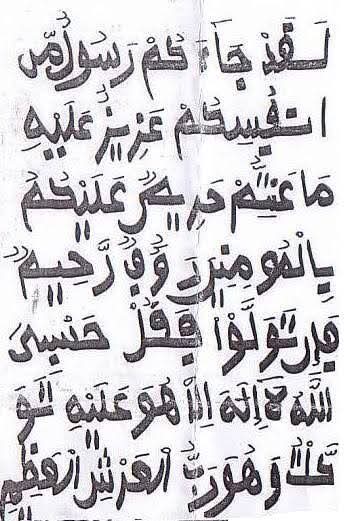 لَقَدْ جَآءَكُمْ رَسُولٌ مِّنْ
اَنفُسِكُمْ عَزِيزٌ عَلَيْهِ
مَا عَنِتُّمْ حَرِيصٌ عَلَيْكُمْ
بِالْمُومِنِينَ رَءُوفٌ رَّحِيمٌ
فَإِن تَوَلَّوْا فَقُلْ حَسْبِيَ
اللَّهُ لَآ إِلَهَ إِلَّا هُوَ عَلَيْهِ تَوَ
كَّلْتُ وَهُوَ رَبُّ الْعَرْشِ الْعَظِيمِ